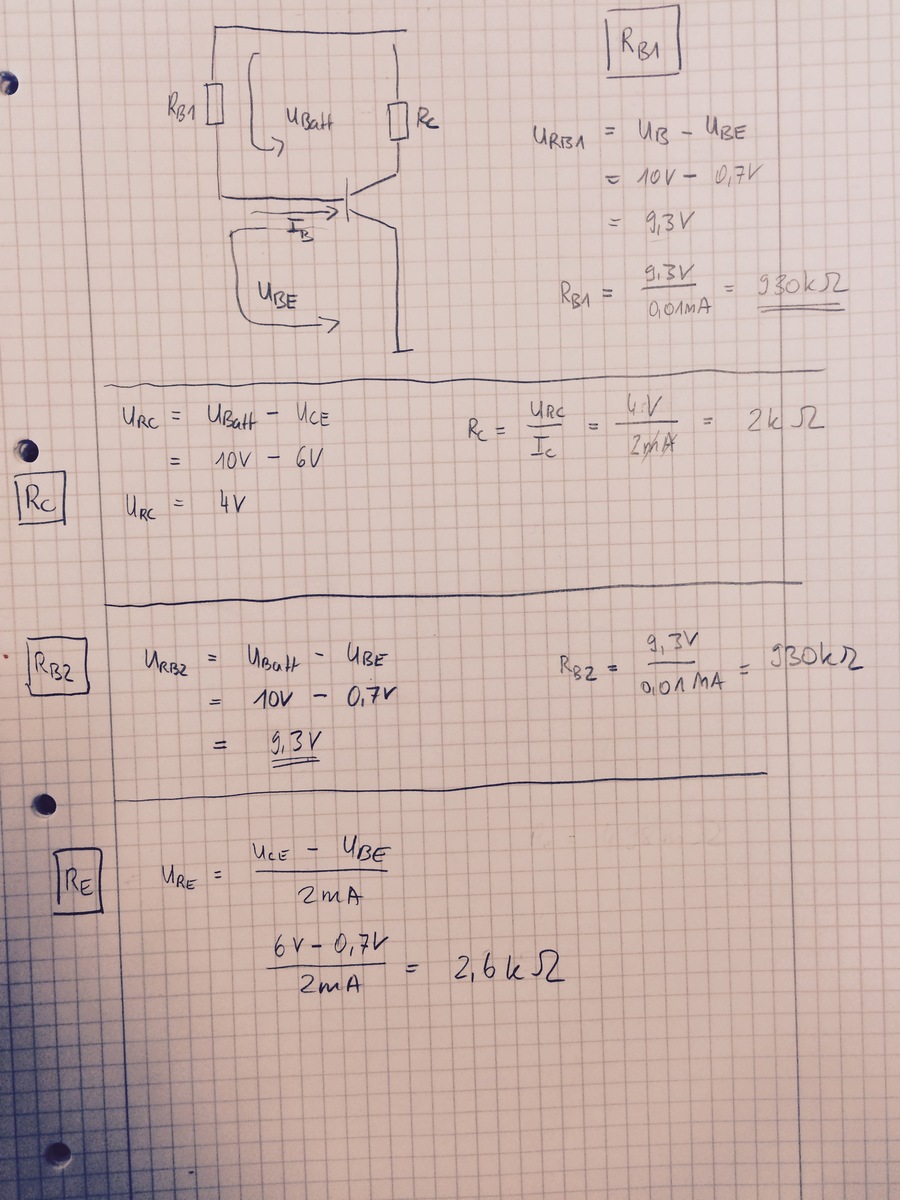 R_B1
R_B1
U_Batt
R_C
I_B
U_BE
U_RB1 = U_B - U_BE
= 10V - 0,7V
= 9,3V
R_B1 = 9,3V / 0,01mA = 930kΩ
U_RC = U_Batt - U_CE
= 10V - 6V
U_RC = 4V
R_C
R_C = U_RC / I_C = 4V / 2mA = 2kΩ
R_B2
U_RB2 = U_Batt - U_BE
= 10V - 0,7V
= 9,3V
R_B2 = 9,3V / 0,01MA = 930kΩ
R_E
U_RE = U_CE - U_BE / 2mA
6V - 0,7V / 2mA = 2,6kΩ